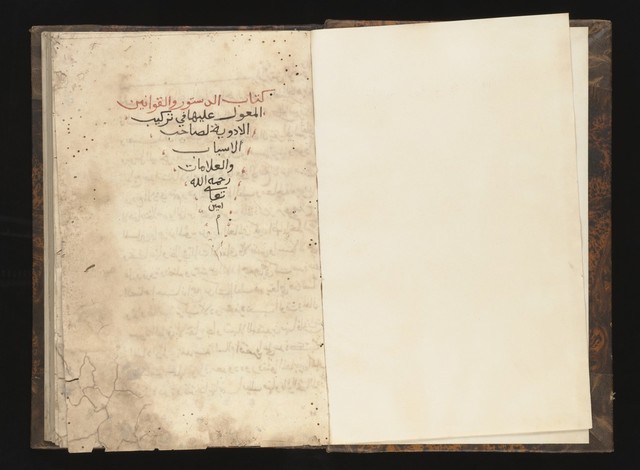 كتاب الدستور والقوانين
المعول عليها في تركيب
الادوية لصاحب
الاسباب
والعلامات
رحمه الله
تعا
امين
م